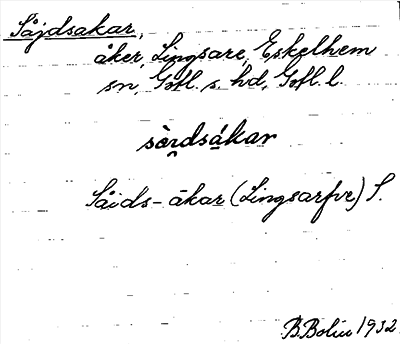 Såjdsakar,
åker, Lingsare, Eskelhem
sn, Gotl. s. hd, Gotl. l.
sòrdsákar
Såids-åkar (Lingsarfve) S.
B. Bolin 1932